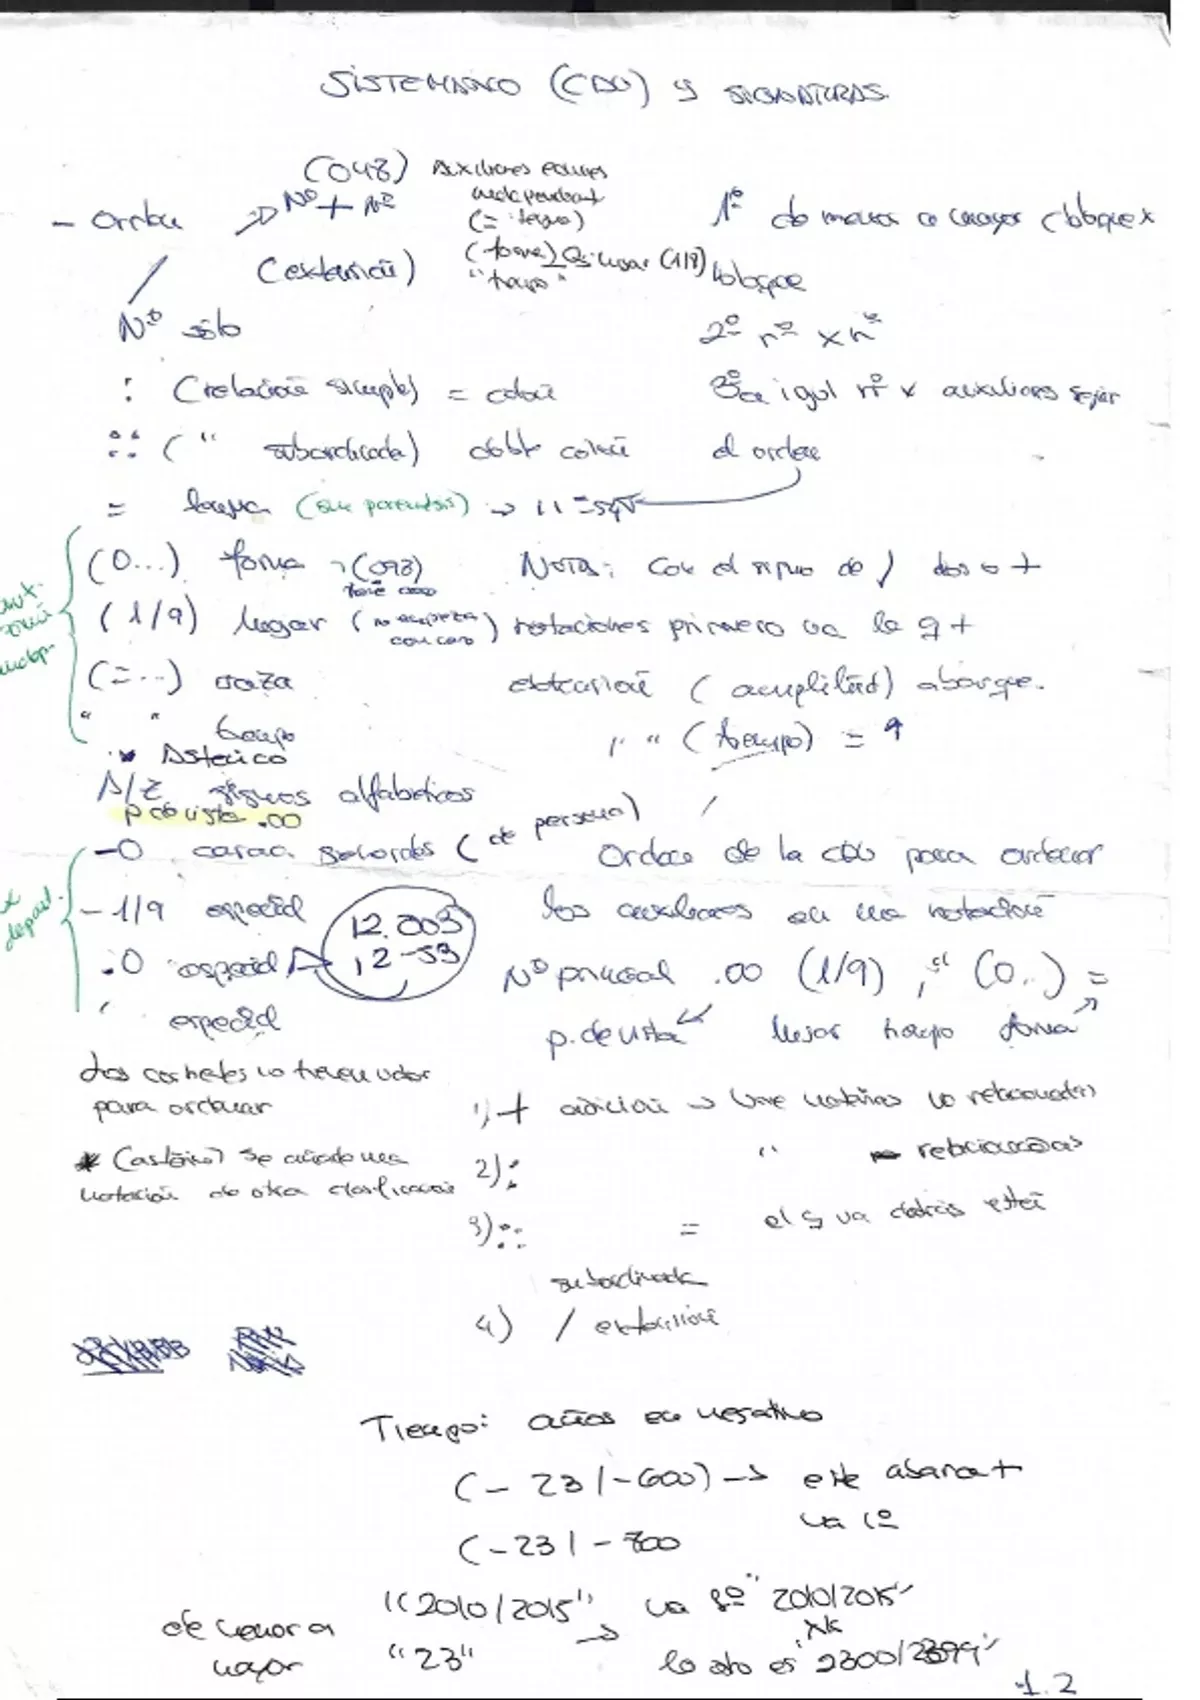 SISTEMÁTICO (CDU) y SIGNATURAS
(048) Auxiliares comunes
independient
(= lengua)
(forma) lugar (1/9)
"tiempo"
- Orden Nº + Nº
(extensión)
1º de menor a mayor (bloque x
bloque
Nº sólo
2º nº x nº
: (relación simple) = cdu
3º a igual nº x auxiliares según
:: ( " subordinada) doble colon
el orden
= lengua (sin parentesis) → 11=
(0...) forma (093)
NOTA: Con el signo de / dos o +
(1/9) lugar (no empieza
con cero)
notaciones primero va la q +
(=...) raza
extensión (amplitud) abarque.
" " tiempo
" " (tiempo) = 9
* Asterisco
A/Z signos alfabéticos
p de vista .00
-0 carac. generales (de persona)
Orden de la cdu para ordenar
-1/9 especial
los auxiliares en una notación
12.003
12-53
.0 especial
Nº principal .00 (1/9) " " (0..) =
' especial
p. de vista lugar tiempo forma
Los corchetes no tienen valor
para ordenar
1) + adición → Une materias no relacionadas
* (asterisco) se añade una
notación de otra clasificación
2) : " relacionadas
3) :: = el q va detrás está
subordinada
4) / extensión
Tiempo: años en negativo
(- 23/-600) → este abarca +
va 1º
(-23/-700
"2010/2015" va 1º "2010/2015"
de menor a
mayor
"23" → lo otro es "2300/2399"
1.2